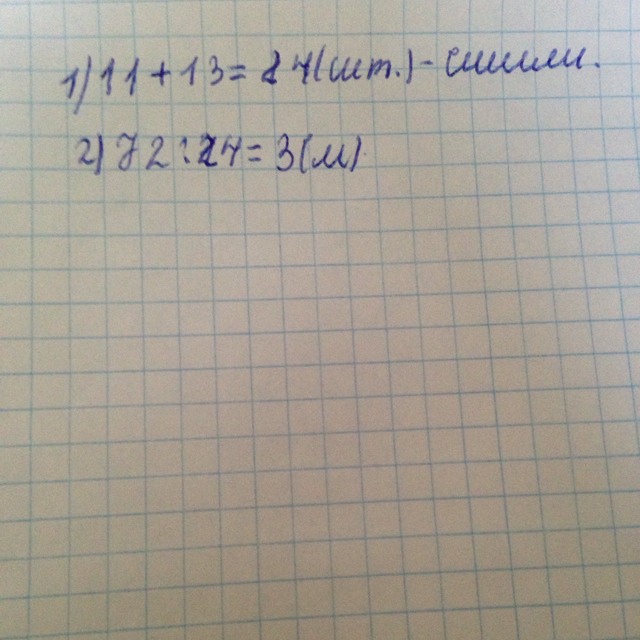 1) 11 + 13 = 24 (шт.) - сшили.
2) 72 : 24 = 3 (м)